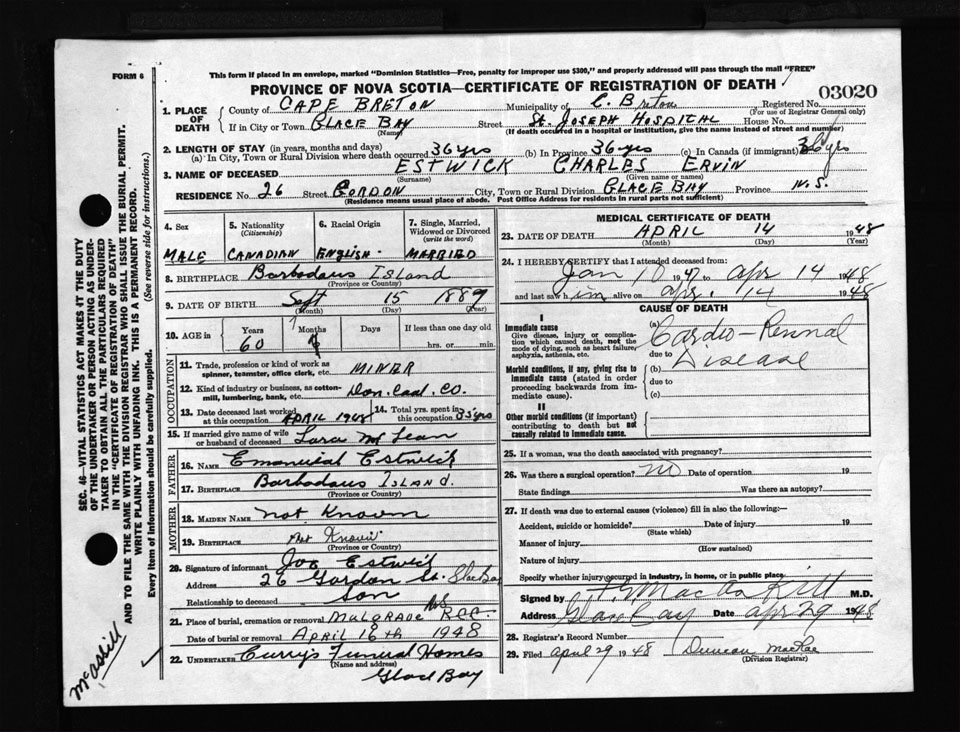 This form if placed in an envelope, marked "Dominion Statistics—Free, penalty for improper use $300," and properly addressed will pass through the mail "FREE"
FORM 6
PROVINCE OF NOVA SCOTIA—CERTIFICATE OF REGISTRATION OF DEATH
03020
1. PLACE OF DEATH
County of CAPE BRETON Municipality of C. Breton Registered No.
(For use of Registrar General only)
If in City or Town GLACE BAY Street St. JOSEPH HOSPITAL House No.
(Name) (If death occurred in a hospital or institution, give the name instead of street and number)
2. LENGTH OF STAY (in years, months and days)
(a) In City, Town or Rural Division where death occurred 36 yrs (b) In Province 36 yrs (c) In Canada (if immigrant) 36 yrs
3. NAME OF DECEASED ESTWICK CHARLES ERVIN
(Surname) (Given name or names)
RESIDENCE No. 26 Street GORDON City, Town or Rural Division GLACE BAY Province N.S.
(Residence means usual place of abode. Post Office Address for residents in rural parts not sufficient)
4. Sex 5. Nationality (Citizenship) 6. Racial Origin 7. Single, Married, Widowed or Divorced (write the word)
MALE CANADIAN ENGLISH MARRIED
8. BIRTHPLACE Barbodaus Island
(Province or Country)
9. DATE OF BIRTH Sept 15 1889
(Month) (Day) (Year)
10. AGE in Years Months Days If less than one day
60 hrs. or min.
OCCUPATION
11. Trade, profession or kind of work as spinner, teamster, office clerk, etc. MINER
12. Kind of industry or business, as cotton-mill, lumbering, bank, etc. Dom. Coal. Co.
13. Date deceased last worked at this occupation APRIL 14. Total yrs. spent in this occupation 35 yrs
15. If married give name of wife or husband of deceased
FATHER
16. NAME Estwick
17. BIRTHPLACE Barbodaus ISLAND.
(Province or Country)
MOTHER
18. MAIDEN NAME not Known
19. BIRTHPLACE not Known
(Province or Country)
20. Signature of informant Joe Estwick
Address 26 Gordon St. Glace Bay
Relationship to deceased Son
21. Place of burial, cremation or removal MULGRAVE N.S.
Date of burial or removal APRIL 16th 1948
22. UNDERTAKER Curry's Funeral Homes
(Name and address)
Glace Bay
MEDICAL CERTIFICATE OF DEATH
23. DATE OF DEATH APRIL 14 1948
(Month) (Day) (Year)
24. I HEREBY CERTIFY that I attended deceased from:
Jan 10 1947 to Apr 14 1948
and last saw him alive on Apr. 14 1948
CAUSE OF DEATH
I
Immediate cause
Give disease, injury or complication which caused death, not the mode of dying, such as heart failure, asphyxia, asthenia, etc.
(a) Cardio-Rennal
due to
Morbid conditions, if any, giving rise to immediate cause (stated in order proceeding backwards from immediate cause).
(b) Disease
due to
(c)
II
Other morbid conditions (if important) contributing to death but not causally related to immediate cause.
25. If a woman, was the death associated with pregnancy?
26. Was there a surgical operation? no Date of operation 19
State findings Was there an autopsy?
27. If death was due to external causes (violence) fill in also the following:—
Accident, suicide or homicide? Date of injury 19
(State which)
Manner of injury
(How sustained)
Nature of injury
Specify whether injury occurred in industry, in home, or in public place.
Signed by M.D.
Address Glace Bay Date Apr 29 1948
28. Registrar's Record Number
29. Filed April 29 1948 Duncan MacRae
(Division Registrar)
SEC. 46—VITAL STATISTICS ACT MAKES IT THE DUTY
OF THE UNDERTAKER OR PERSON ACTING AS UNDERTAKER TO OBTAIN ALL THE PARTICULARS REQUIRED
IN THE "CERTIFICATE OF REGISTRATION OF DEATH"
AND TO FILE THE SAME WITH THE DIVISION REGISTRAR WHO SHALL ISSUE THE BURIAL PERMIT.
WRITE PLAINLY WITH UNFADING INK. THIS IS A PERMANENT RECORD.
Every item of information should be carefully supplied. (See reverse side for instructions.)